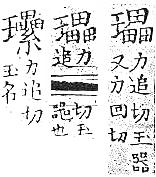 瓃 力追切玉器
又力回切
瓃 力追
切玉
噐也
力追切
玉名